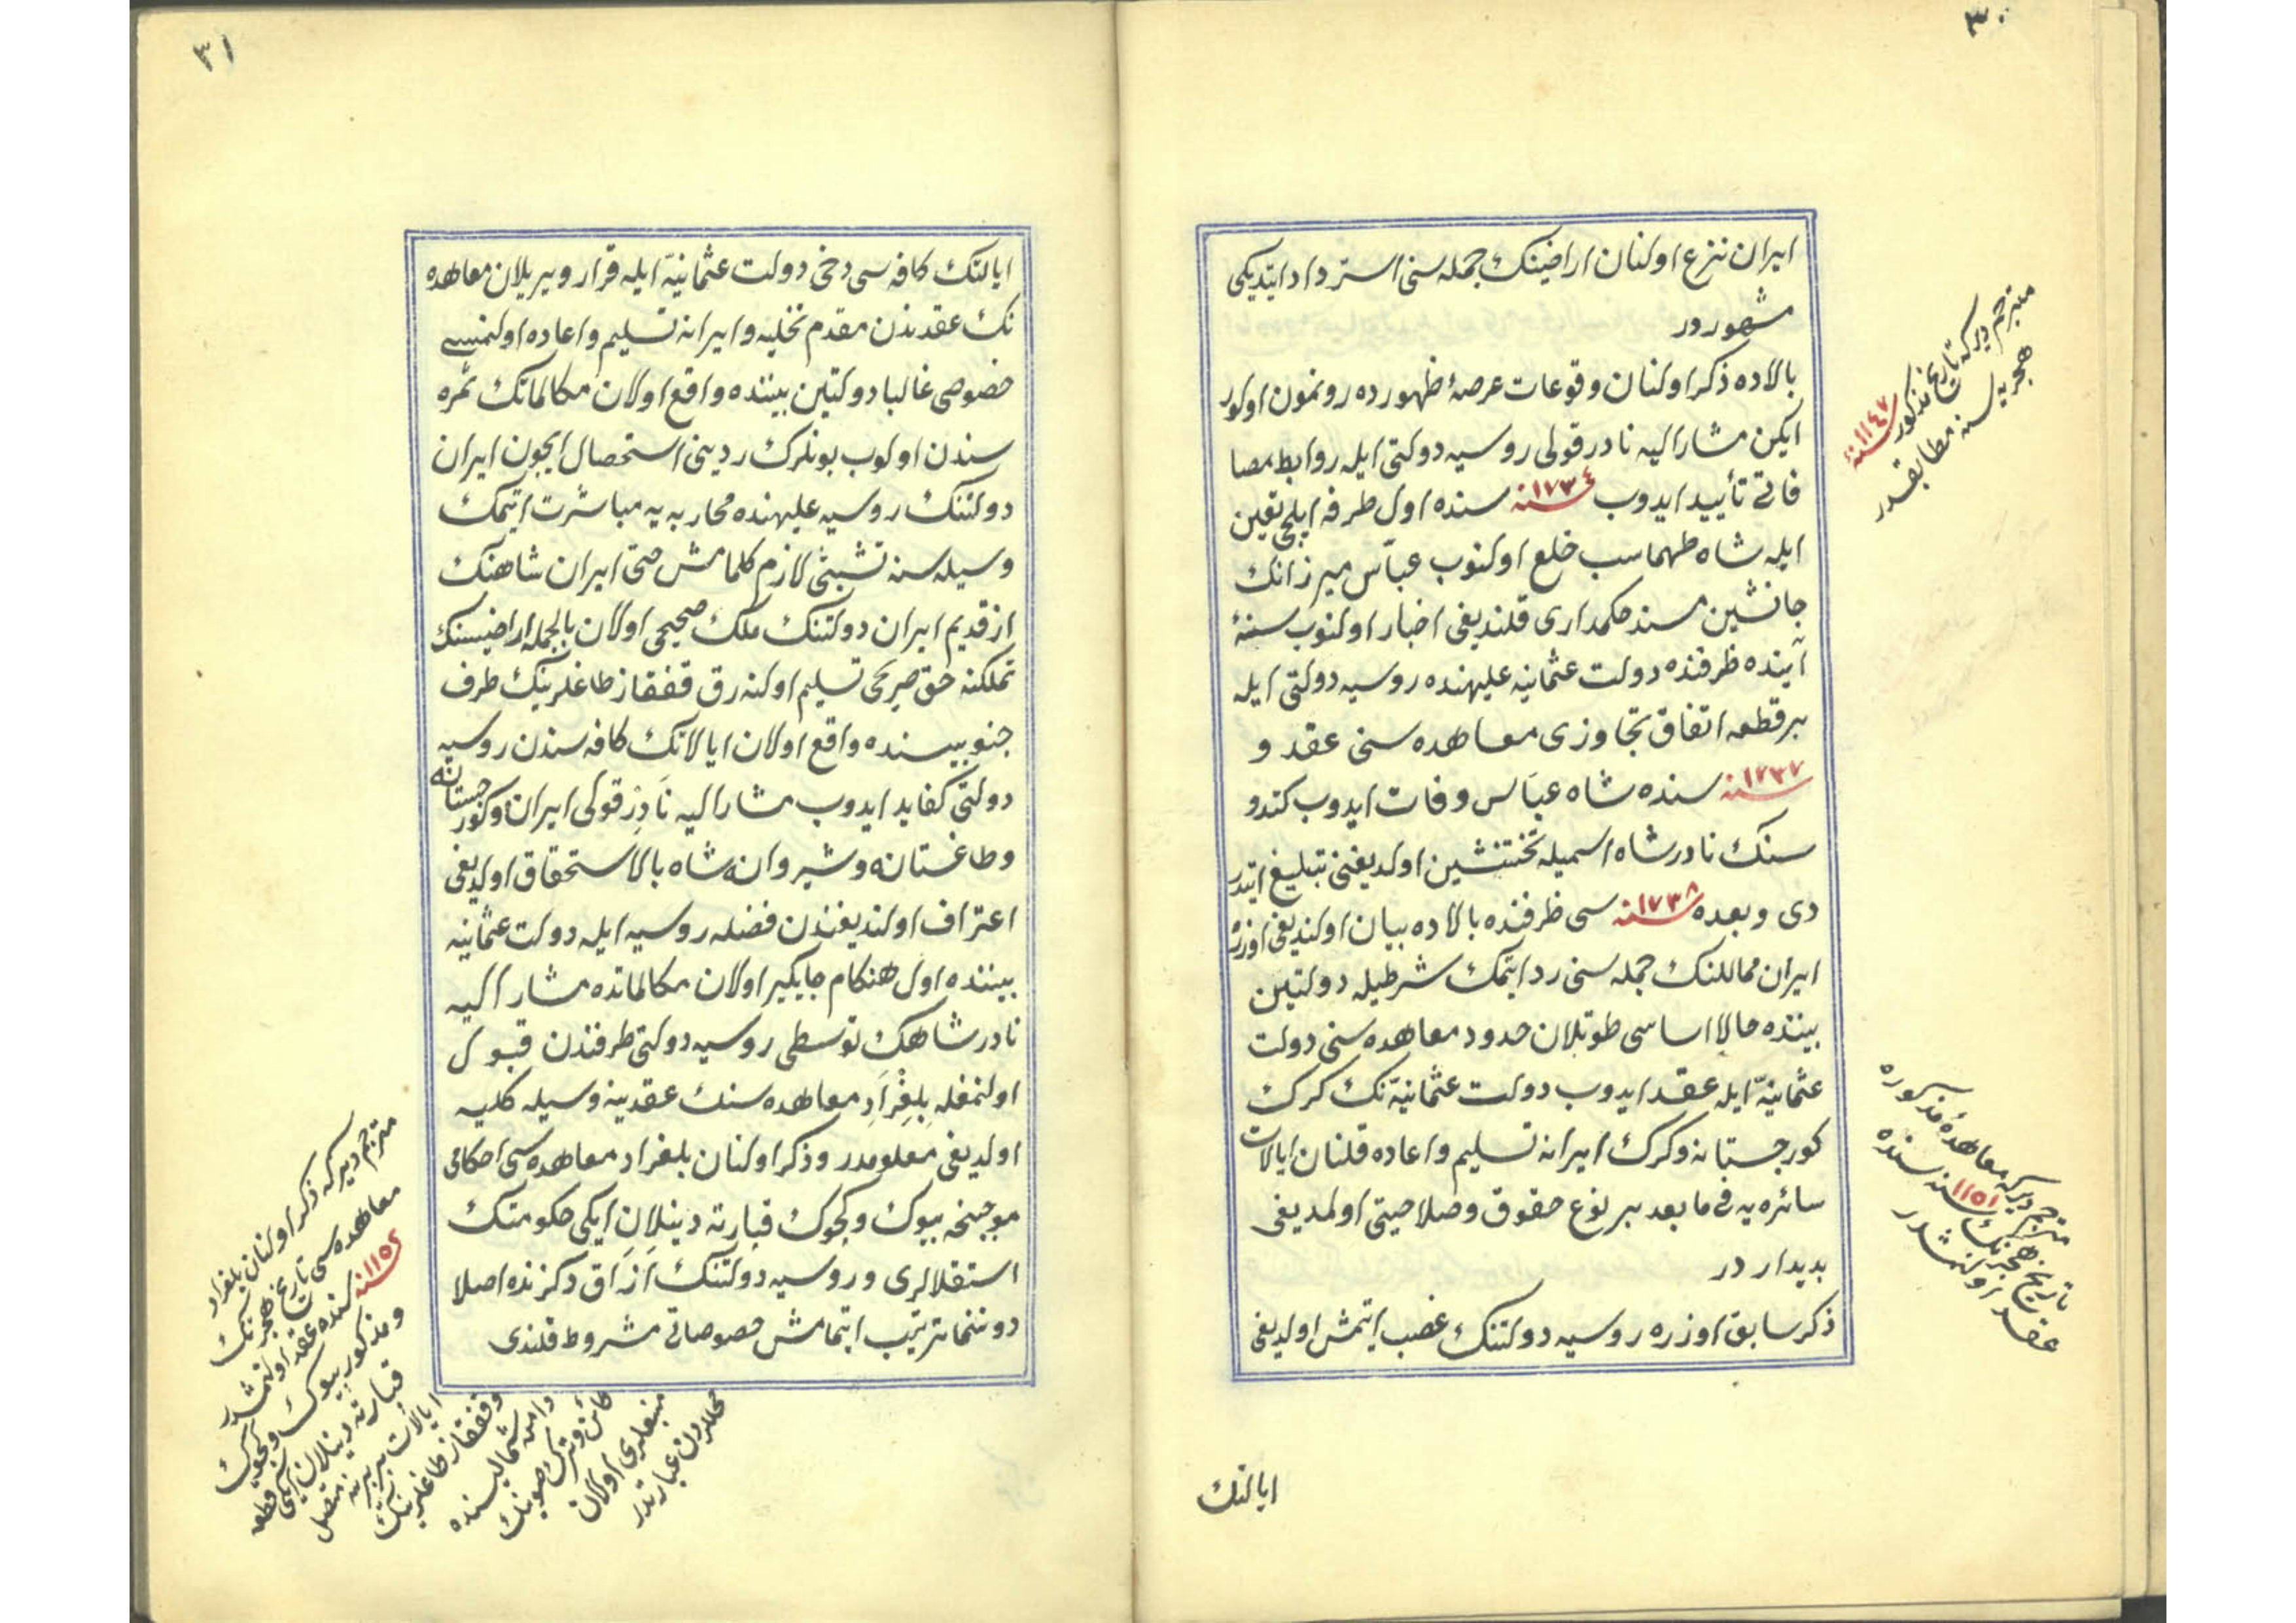 ٣٠
ایران نزع اولنان اراضینك جمله سنی استرداد ایتدیكی
مشهوردر
بالاده ذكر اولنان وقوعات عرصهٔ ظهورده رونمون اولور
ایكن مشار الیه نادر قولی روسیه دولتی ایله روابط مصا
فاتی تأیید ایدوب سنه ١٧٣٤ سنده اول طرفه ایلچی تعیین
ایله شاه طهماسب خلع اولنوب عباس میرزانك
جانشین مسند حكمداری قلندیغی اخبار اولنوب سنهٔ
آینده ظرفنده دولت عثمانیه علیهنده روسیه دولتی ایله
بر قطعه اتفاق تجاوزی معاهده سنی عقد و
سنه ١٧٣٧ سنده شاه عباس وفات ایدوب كندو
سنك نادرشاه اسمیله تختنشین اولدیغنی تبلیغ ایتدر
دی و بعده سنه ١٧٣٨ سی ظرفنده بالاده بیان اولندیغی اوزره
ایران ممالكنك جمله سنی رد ایتمك شرطیله دولتین
بیننده حالا اساسی طوتیلان حدود معاهده سنی دولت
عثمانیّه ایله عقد ایدوب دولت عثمانیّه نك كرك
كورجستانه و كرك ایرانه تسلیم و اعاده قلنان ایالات
سائره یه فی ما بعد بر نوع حقوق و صلاحیتی اولمدیغی
بدیدار در
ذكر سابق اوزره روسیه دولتنك غصب ایتمش اولدیغی
ایالتك
مترجم دیركه تاریخ مذكور سنه ١١٤٧
هجریه سنه مطابقدر
مترجم دیركه معاهدهٔ مذكوره
تاریخ هجرینك سنه ١١٥١ سنده
عقد اولنمشدر
٣١
ایالتك كافه سی دخی دولت عثمانیّه ایله قرار ویریلان معاهده
نك عقدندن مقدم تخلیه و ایرانه تسلیم و اعاده اولنمسی
خصوصی غالبا دولتین بیننده واقع اولان مكالماتك ثمره
سندن اولوب بونلرك ردینی استحصال ایچون ایران
دولتنك روسیه علیهنده محاربه یه مباشرت ایتمك
وسیله سنه تشبثی لازم كلمامش حتی ایران شاهنك
از قدیم ایران دولتنك ملك صحیحی اولان بالجمله اراضیسنك
تملكنه حق صریحی تسلیم اولنه رق قفقاز طاغلرینك طرف
جنوبیسنده واقع اولان ایالاتك كافه سندن روسیه
دولتی كفاید ایدوب مشار الیه نادِر قولی ایران و كورجستانه
و طاغستانه و شیروانه شاه بالاستحقاق اولدیغی
اعتراف اولندیغندن فضله روسیه ایله دولت عثمانیه
بیننده اول هنكام جایكیر اولان مكالماتده مشار الیه
نادر شاهك توسطی روسیه دولتی طرفندن قبول
اولنمغله بلغراد معاهده سنك عقدینه وسیله كلیه
اولدیغی معلومدر و ذكر اولنان بلغراد معاهده سی احكامی
موجبنجه بیوك و كچوك قبارته دینلان ایكی حكومتك
استقلالری و روسیه دولتنك ازاق دكزنده اصلا
دوننما ترتیب ایتمامش خصوصاتی مشروط قلندی
مترجم دیركه ذكر اولنان بلغراد
معاهده سی تاریخ هجرینك
سنه ١١٥٢ سنده عقد اولنمشدر
و مذكور بیوك و كچوك
قبارته دینلان ایكی قطعه
ایالات بربرینه متصل
و قفقاز طاغلرینك
دامن شمالیسنده
كائن و ترك صوینك
منبعلری اولان
محللردن عبارتدر